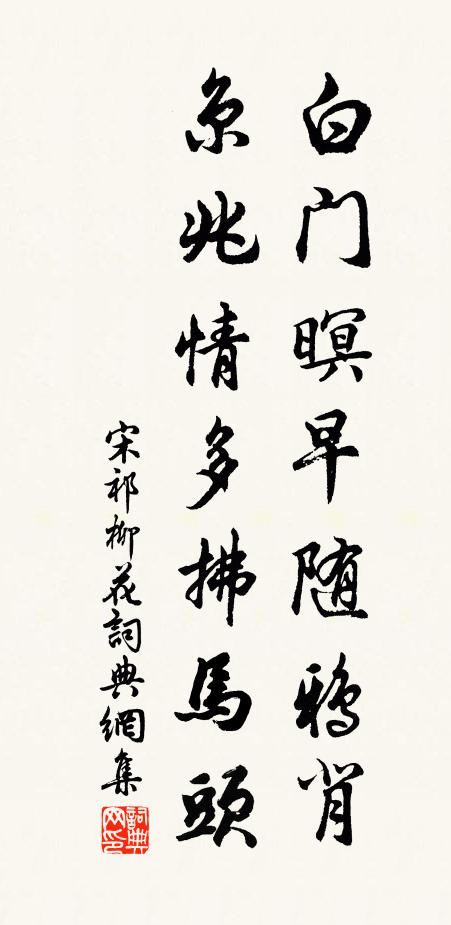 白门暝早随鸦背
京兆情多拂馬頭
宋祁柳花詞典網集
詞典网印